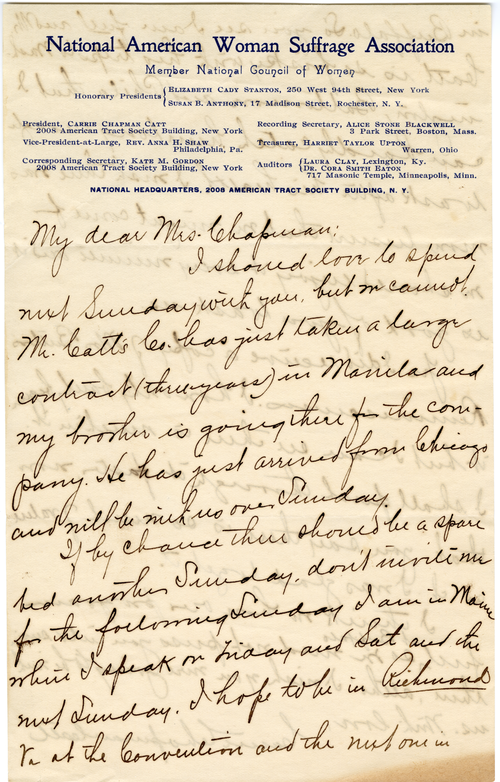 National American Woman Suffrage Association
Member National Council of Women
Honorary Presidents { ELIZABETH CADY STANTON, 250 West 94th Street, New York
SUSAN B. ANTHONY, 17 Madison Street, Rochester, N. Y.
President, CARRIE CHAPMAN CATT
2008 American Tract Society Building, New York
Vice-President-at-Large, REV. ANNA H. SHAW
Philadelphia, Pa.
Corresponding Secretary, KATE M. GORDON
2008 American Tract Society Building, New York
Recording Secretary, ALICE STONE BLACKWELL
3 Park Street, Boston, Mass.
Treasurer, HARRIET TAYLOR UPTON
Warren, Ohio
Auditors { LAURA CLAY, Lexington, Ky.
DR. CORA SMITH EATON
717 Masonic Temple, Minneapolis, Minn.
NATIONAL HEADQUARTERS, 2008 AMERICAN TRACT SOCIETY BUILDING, N. Y.
My dear Mrs. Chapman;
I should love to spend
next Sunday with you, but we cannot.
Mr. Catt's Co. has just taken a large
contract (three years) in Manila and
my brother is going there for the com-
pany. He has just arrived from Chicago
and will be with us over Sunday.
If by chance there should be a spare
bed another Sunday, don't invite me
for the following Sunday. I am in Maine
where I speak on Friday and Sat and the
next Sunday. I hope to be in Richmond
Va at the Convention and the next one in